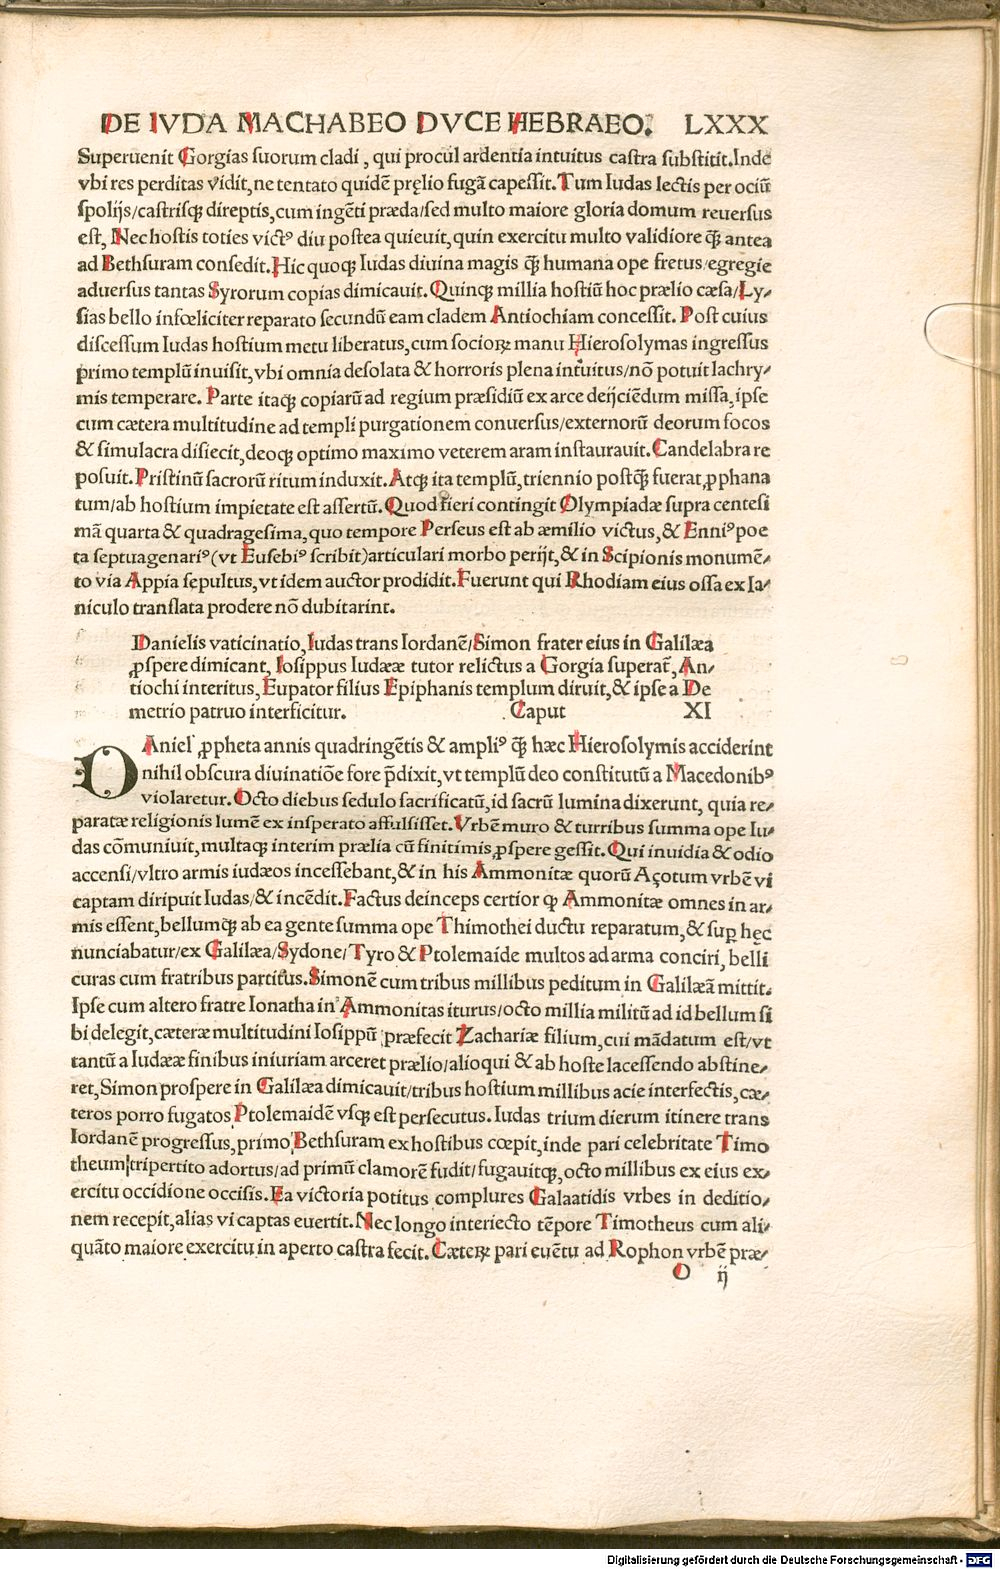 DE IVDA MACHABEO DVCE HEBRAEO. LXXX
Superuenit Gorgias suorum cladi, qui procul ardentia intuitus castra substitit. Inde
vbi res perditas vidit, ne tentato quidẽ pręlio fugã capessit. Tum Iudas lectis per ociũ
spolijs/castrisq̃ direptis, cum ingẽti præda/sed multo maiore gloria domum reuersus
est, Nec hostis toties victꝰ diu postea quieuit, quin exercitu multo validiore q̃ antea
ad Bethsuram consedit. Hic quoq̃ Iudas diuina magis q̃ humana ope fretus/egregie
aduersus tantas Syrorum copias dimicauit. Quinq̃ millia hostiũ hoc prælio cæsa/Ly⸗
sias bello infœliciter reparato secundũ eam cladem Antiochiam concessit. Post cuius
discessum Iudas hostium metu liberatus, cum socioꝝ manu Hierosolymas ingressus
primo templũ inuisit, vbi omnia desolata & horroris plena intuitus/nõ potuit lachry⸗
mis temperare. Parte itaq̃ copiarũ ad regium præsidiũ ex arce deijciẽdum missa, ipse
cum cætera multitudine ad templi purgationem conuersus/externorũ deorum focos
& simulacra disiecit, deoq̃ optimo maximo veterem aram instaurauit. Candelabra re
posuit. Pristinũ sacrorũ ritum induxit. Atq̃ ita templũ, triennio postq̃ fuerat ꝓphana
tum/ab hostium impietate est assertũ. Quod fieri contingit Olympiadæ supra centesi
mã quarta & quadragesima, quo tempore Perseus est ab æmilio victus, & Enniꝰ poe
ta septuagenariꝰ (vt Eusebiꝰ scribit) articulari morbo perijt, & in Scipionis monumẽ⸗
to via Appia sepultus, vt idem auctor prodidit. Fuerunt qui Rhodiam eius ossa ex Ia⸗
niculo translata prodere nõ dubitarint.
Danielis vaticinatio, Iudas trans Iordanẽ/Simon frater eius in Galilæa
ꝓspere dimicant, Iosippus Iudææ tutor relictus a Gorgia superat̃, An⸗
tiochi interitus, Eupator filius Epiphanis templum diruit, & ipse a De
metrio patruo interficitur. Caput XI
DAniel ꝓpheta annis quadringẽtis & ampliꝰ q̃ hæc Hierosolymis acciderint
nihil obscura diuinatiõe fore p̃dixit, vt templũ deo constitutũ a Macedonibꝰ
violaretur. Octo diebus sedulo sacrificatũ, id sacrũ lumina dixerunt, quia re⸗
paratæ religionis lumẽ ex insperato affulsisset. Vrbẽ muro & turribus summa ope Iu⸗
das cõmuniuit, multaq̃ interim prælia cũ finitimis ꝓspere gessit. Qui inuidia & odio
accensi/vltro armis iudæos incessebant, & in his Ammonitæ quorũ Açotum vrbẽ vi
captam diripuit Iudas/& incẽdit. Factus deinceps certior ꝙ Ammonitæ omnes in ar⸗
mis essent, bellumq̃ ab ea gente summa ope Thimothei ductu reparatum, & sup̱ hęc
nunciabatur/ex Galilæa/Sydone/Tyro & Ptolemaide multos ad arma conciri, belli
curas cum fratribus partitus. Simonẽ cum tribus millibus peditum in Galilæã mittit.
Ipse cum altero fratre Ionatha in Ammonitas iturus/octo millia militũ ad id bellum si
bi delegit, cæteræ multitudini Iosippũ præfecit Zachariæ filium, cui mãdatum est/vt
tantũ a Iudææ finibus iniuriam arceret prælio/alioqui & ab hoste lacessendo abstine⸗
ret, Simon prospere in Galilæa dimicauit/tribus hostium millibus acie interfectis, cæ⸗
teros porro fugatos Ptolemaidẽ vsq̃ est persecutus. Iudas trium dierum itinere trans
Iordanẽ progressus, primo Bethsuram ex hostibus cœpit, inde pari celebritate Timo
theum tripertito adortus/ad primũ clamorẽ fudit/fugauitq̃, octo millibus ex eius ex⸗
ercitu occidione occisis. Ea victoria potitus complures Galaatidis vrbes in deditio⸗
nem recepit, alias vi captas euertit. Nec longo interiecto tẽpore Timotheus cum ali⸗
quãto maiore exercitu in aperto castra fecit. Cæteꝝ pari euẽtu ad Rophon vrbẽ præ⸗
O ij
Digitalisierung gefördert durch die Deutsche Forschungsgemeinschaft - DFG